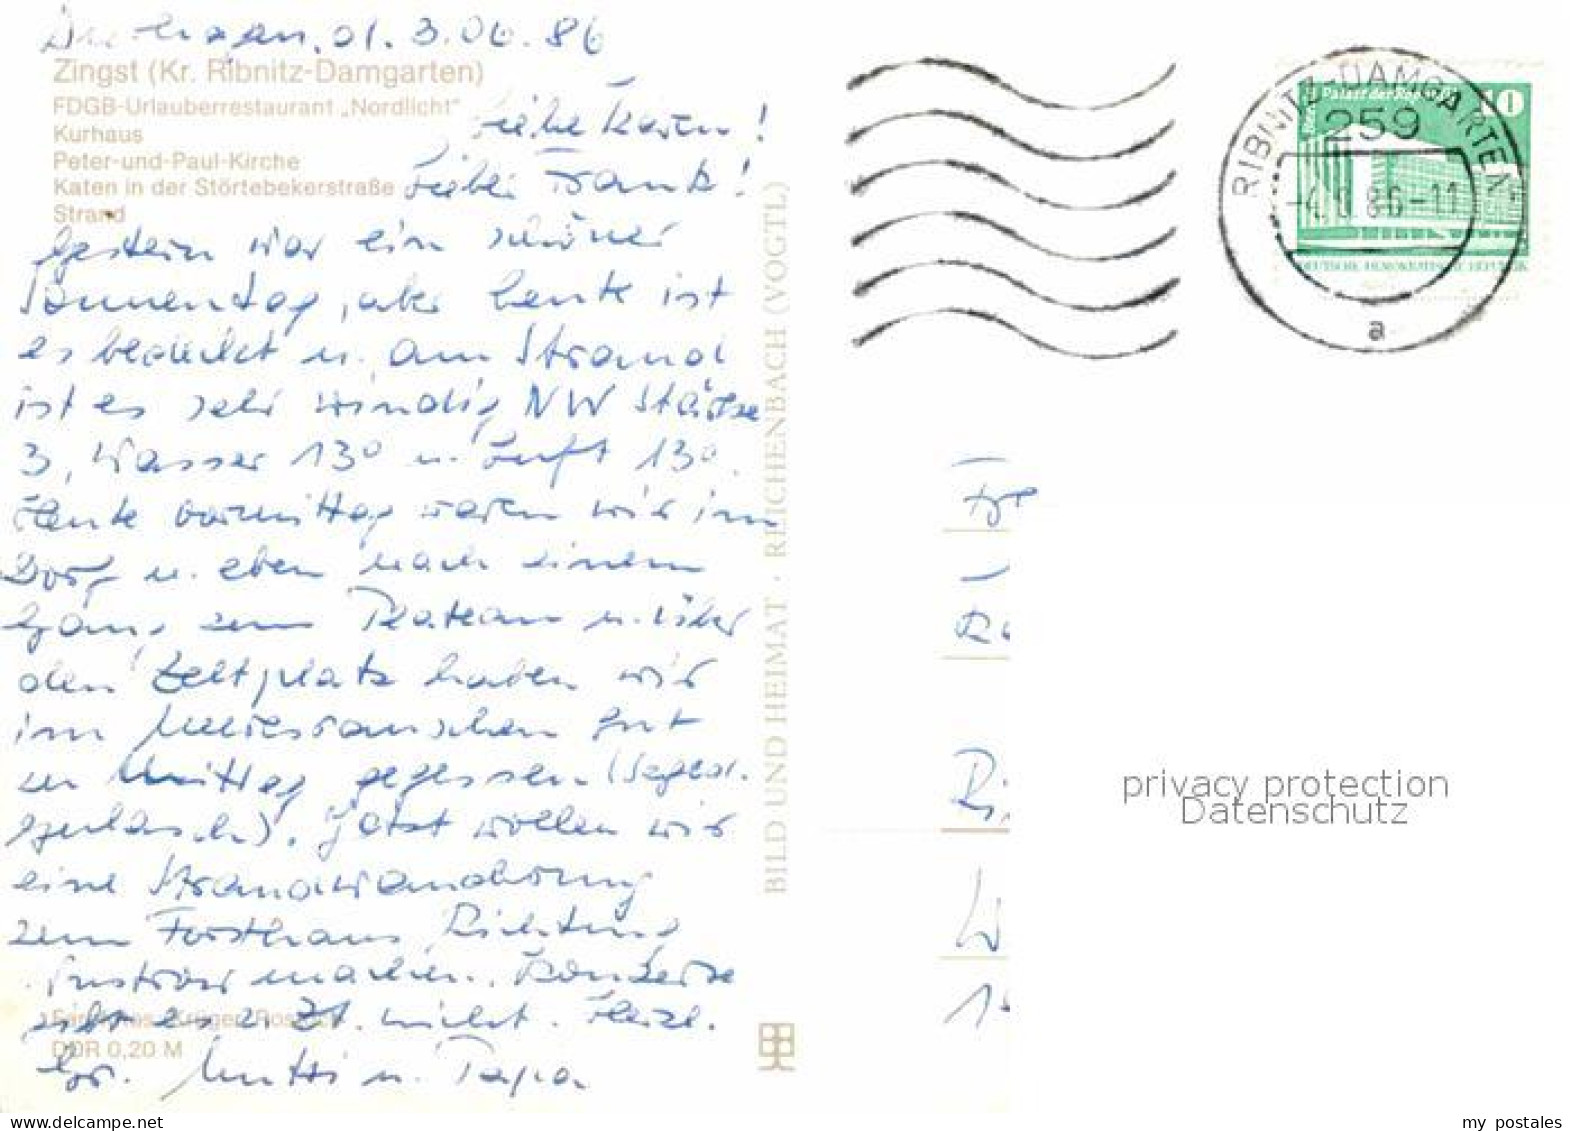 Dierhagen, d. 3.06.86
Zingst (Kr. Ribnitz-Damgarten)
FDGB-Urlauberrestaurant „Nordlicht“
Kurhaus
Peter-und-Paul-Kirche
Katen in der Störtebekerstraße
Strand
Liebe Karen!
Lieber Frank!
Gestern war ein schöner
Sonnentag, aber heute ist
es bedeckt u. am Strand
ist es sehr windig NW Stärke
3, Wasser 13° u. Luft 13°.
Heute vormittag waren wir im
Dorf u. eben nach einem
Gang zum Plateau u. über
den Zeltplatz haben wir
im Meeresrauschen gut
zu Mittag gegessen (Szeged.
Gulasch). Jetzt wollen wir
eine Strandwanderung
zum Forsthaus Richtung
Wustrow machen. Konzerte
gibt es z. Zt. nicht. Herzl.
Gr. Mutti u. Papa
DDR 0,20 M
BILD UND HEIMAT · REICHENBACH (VOGTL)
RIBNITZ-DAMGARTEN
259
86-11
a
Palast der Republik
10
DEUTSCHE DEMOKRATISCHE REPUBLIK
privacy protection
Datenschutz
my postales